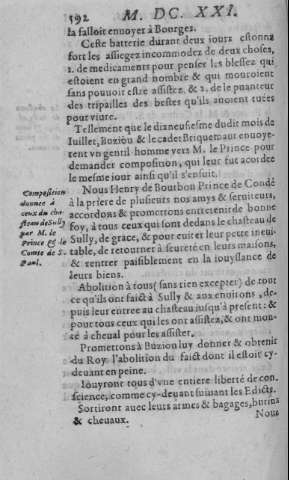 592 M. DC. XXI.
la falloit enuoyer à Bourges.
Ceste batterie durant deux iours estonna
fort les assiegez incommodez de deux choses,
1. de medicaments pour penser les blessez qui
estoient en grand nombre & qui mouroient
sans pouuoir estre assistez, & 2. de la puanteur
des tripailles des bestes qu'ils auoient tuées
pour viure.
Tellement que le dixneufiesme dudit mois de
Iuillet, Buziou & le cadet Briquemaut enuoye-
rent vn gentil homme vers M. le Prince pour
demander composition, qui leur fut acordée
le mesme iour ainsi qu'il s'ensuit.
Nous Henry de Bourbon Prince de Condé
à la priere de plusieurs nos amys & seruiteurs,
accordons & promettons entretenir de bonne
foy, à tous ceux qui sont dedans le chasteau de
Sully, de grace, & pour euiter leur perte ineui-
table, de retourner à seureté en leurs maisons,
& rentrer paisiblement en la iouyssance de
leurs biens.
Composition
donnee à
ceux du cha-
steau de Sully
par M. le
Prince & le
Comte de S.
Paul.
Abolition à tous (sans rien excepter) de tout
ce qu'ils ont faict à Sully & aux enuirons, de-
puis leur entree au chasteau iusqu'à present: &
pour tous ceux qui les ont assistez, & ont mon-
té à cheual pour les assister.
Promettons à Buziou luy donner & obtenir
du Roy l'abolition du faict dont il estoit cy-
deuant en peine.
Iouyront tous d'vne entiere liberté de con-
science, comme cy-deuant suiuant les Edicts.
Sortiront auec leurs armes & bagages, butins
& cheuaux.
Nous